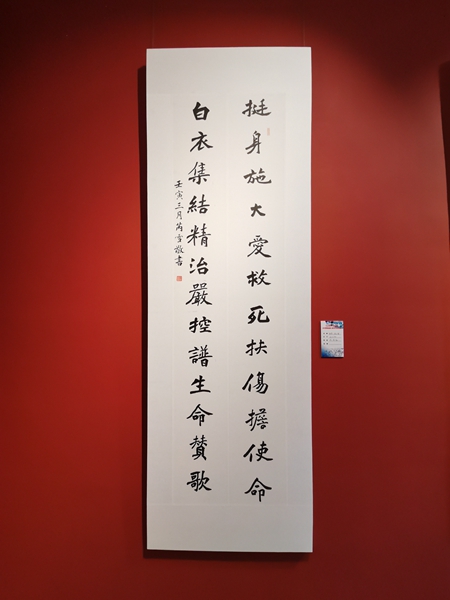 挺身施大愛救死扶傷擔使命
白衣集結精治嚴控譜生命贊歌
壬寅三月芮雪敬書